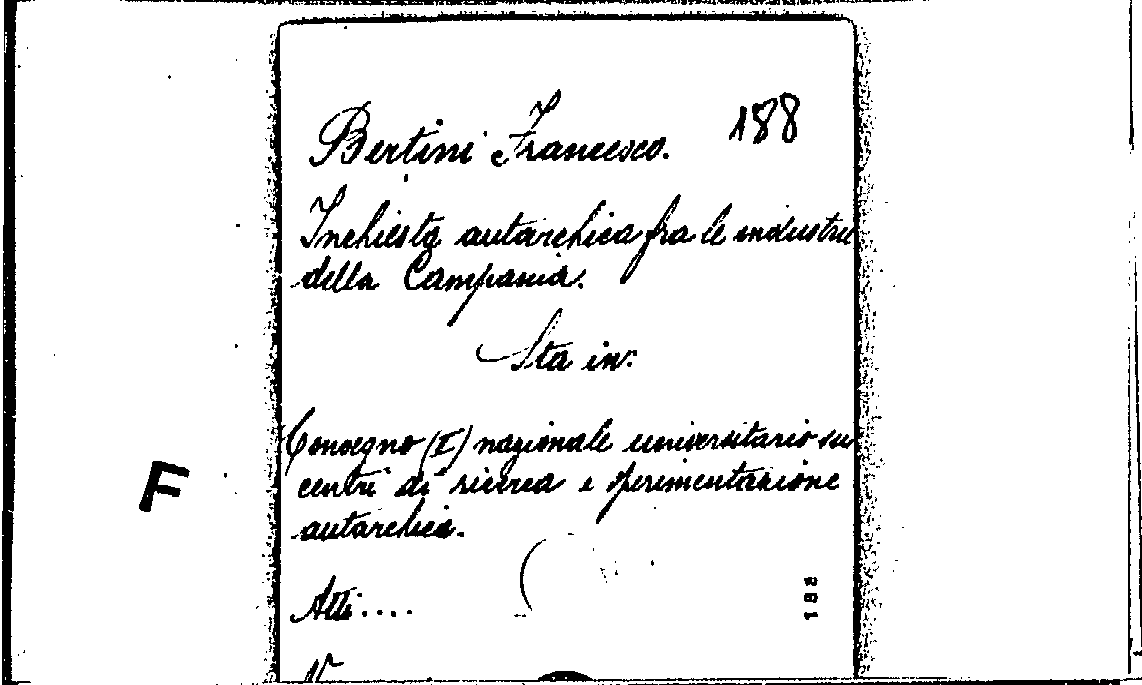 Bertini Francesco. 188
Inchiesta autarchica fra le industrie
della Campania.
Sta in:
Convegno (I) nazionale universitario su
centri di ricerca e sperimentazione
autarchica.
F
Atti....
188